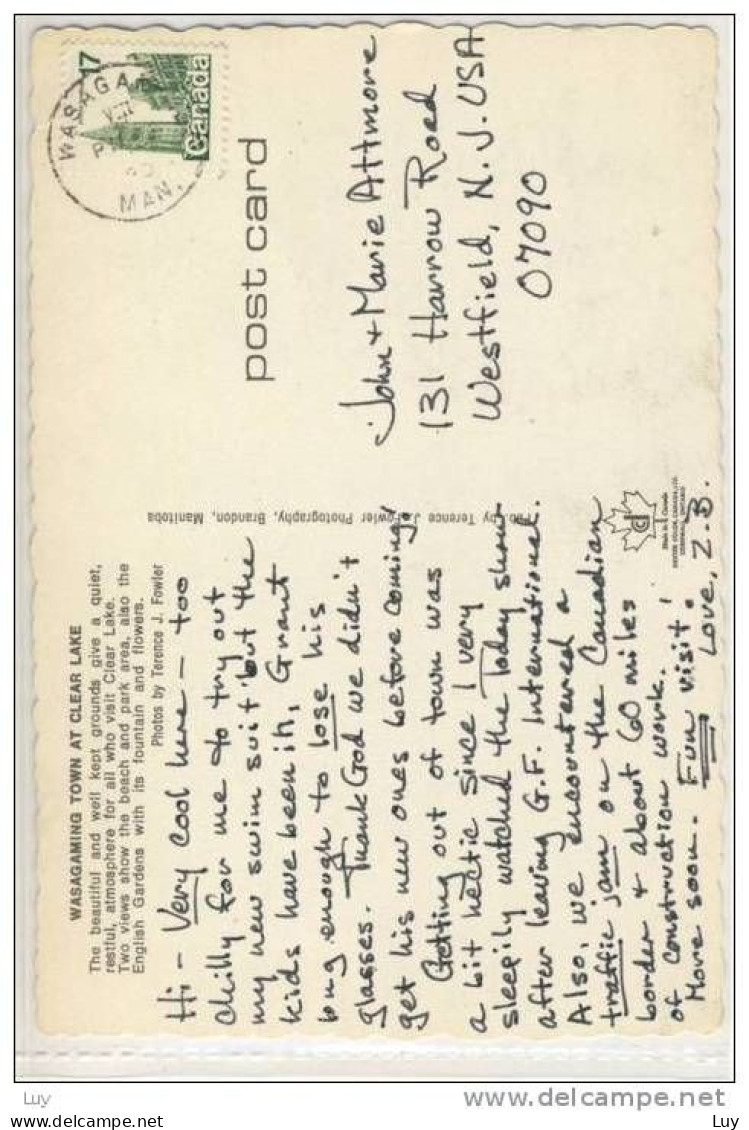 WASAGAMING TOWN AT CLEAR LAKE
The beautiful and well kept grounds give a quiet,
restful, atmosphere for all who visit Clear Lake.
Two views show the beach and park area, also the
English Gardens with its fountain and flowers.
Photos by Terence J. Fowler
Hi - Very cool here - too
chilly for me to try out
my new swim suit but the
kids have been in, Grant
long enough to lose his
glasses. Thank God we didn't
get his new ones before coming!
Getting out of town was
a bit hectic since I very
sleepily watched the Today show
after leaving G.F. International.
Also, we encountered a
traffic jam on the Canadian
border & about 60 miles
of construction work.
More soon. Fun visit!
Love, Z.B.
by Terence J. Fowler Photography, Brandon, Manitoba
Made in Canada
post card
17
Canada
WASAGA
VII
MAN.
John & Marie Attmore
131 Harrow Road
Westfield, N.J. USA
07090
delcampe.net
Luy
Luy
Luy
Luy